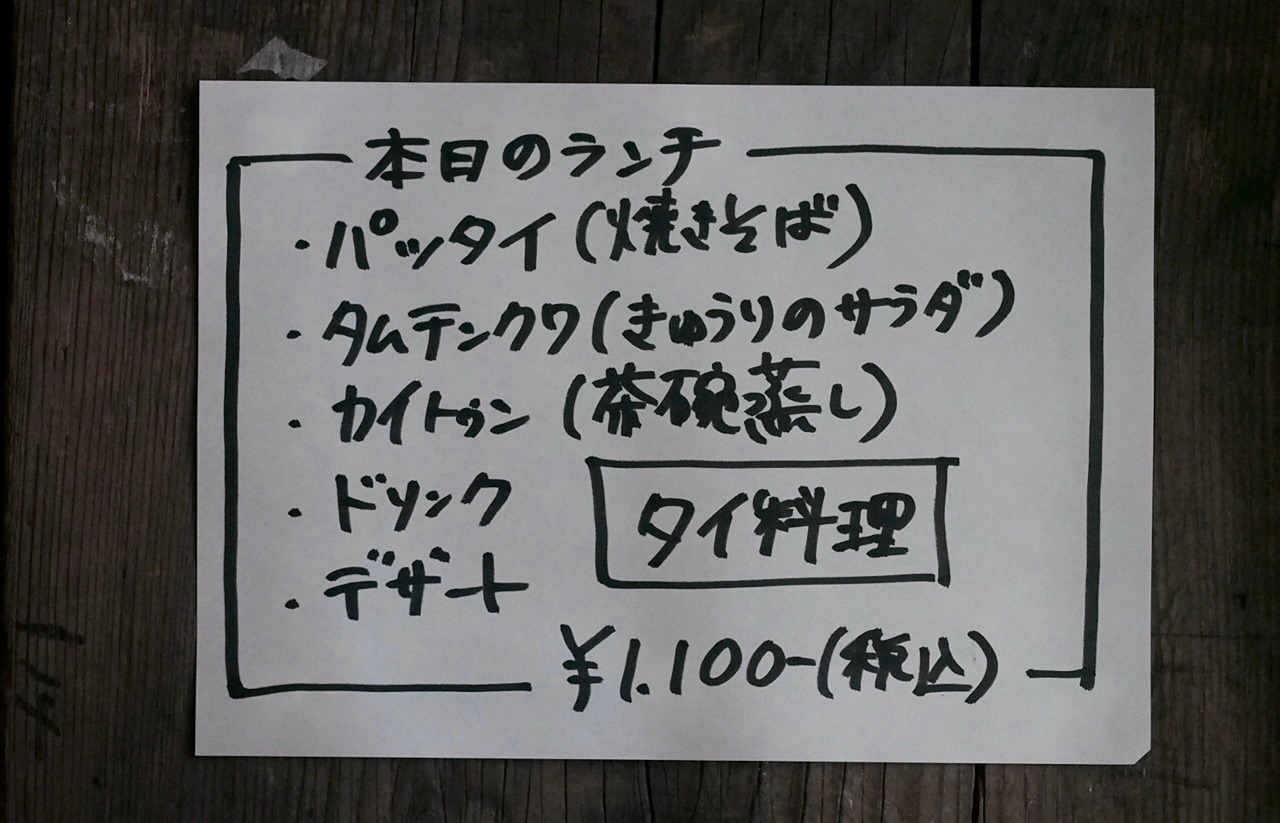 本日のランチ
・パッタイ(焼きそば)
・タムテンクワ(きゅうりのサラダ)
・カイトゥン(茶碗蒸し)
・ドリンク
タイ料理
・デザート
¥1.100-(税込)